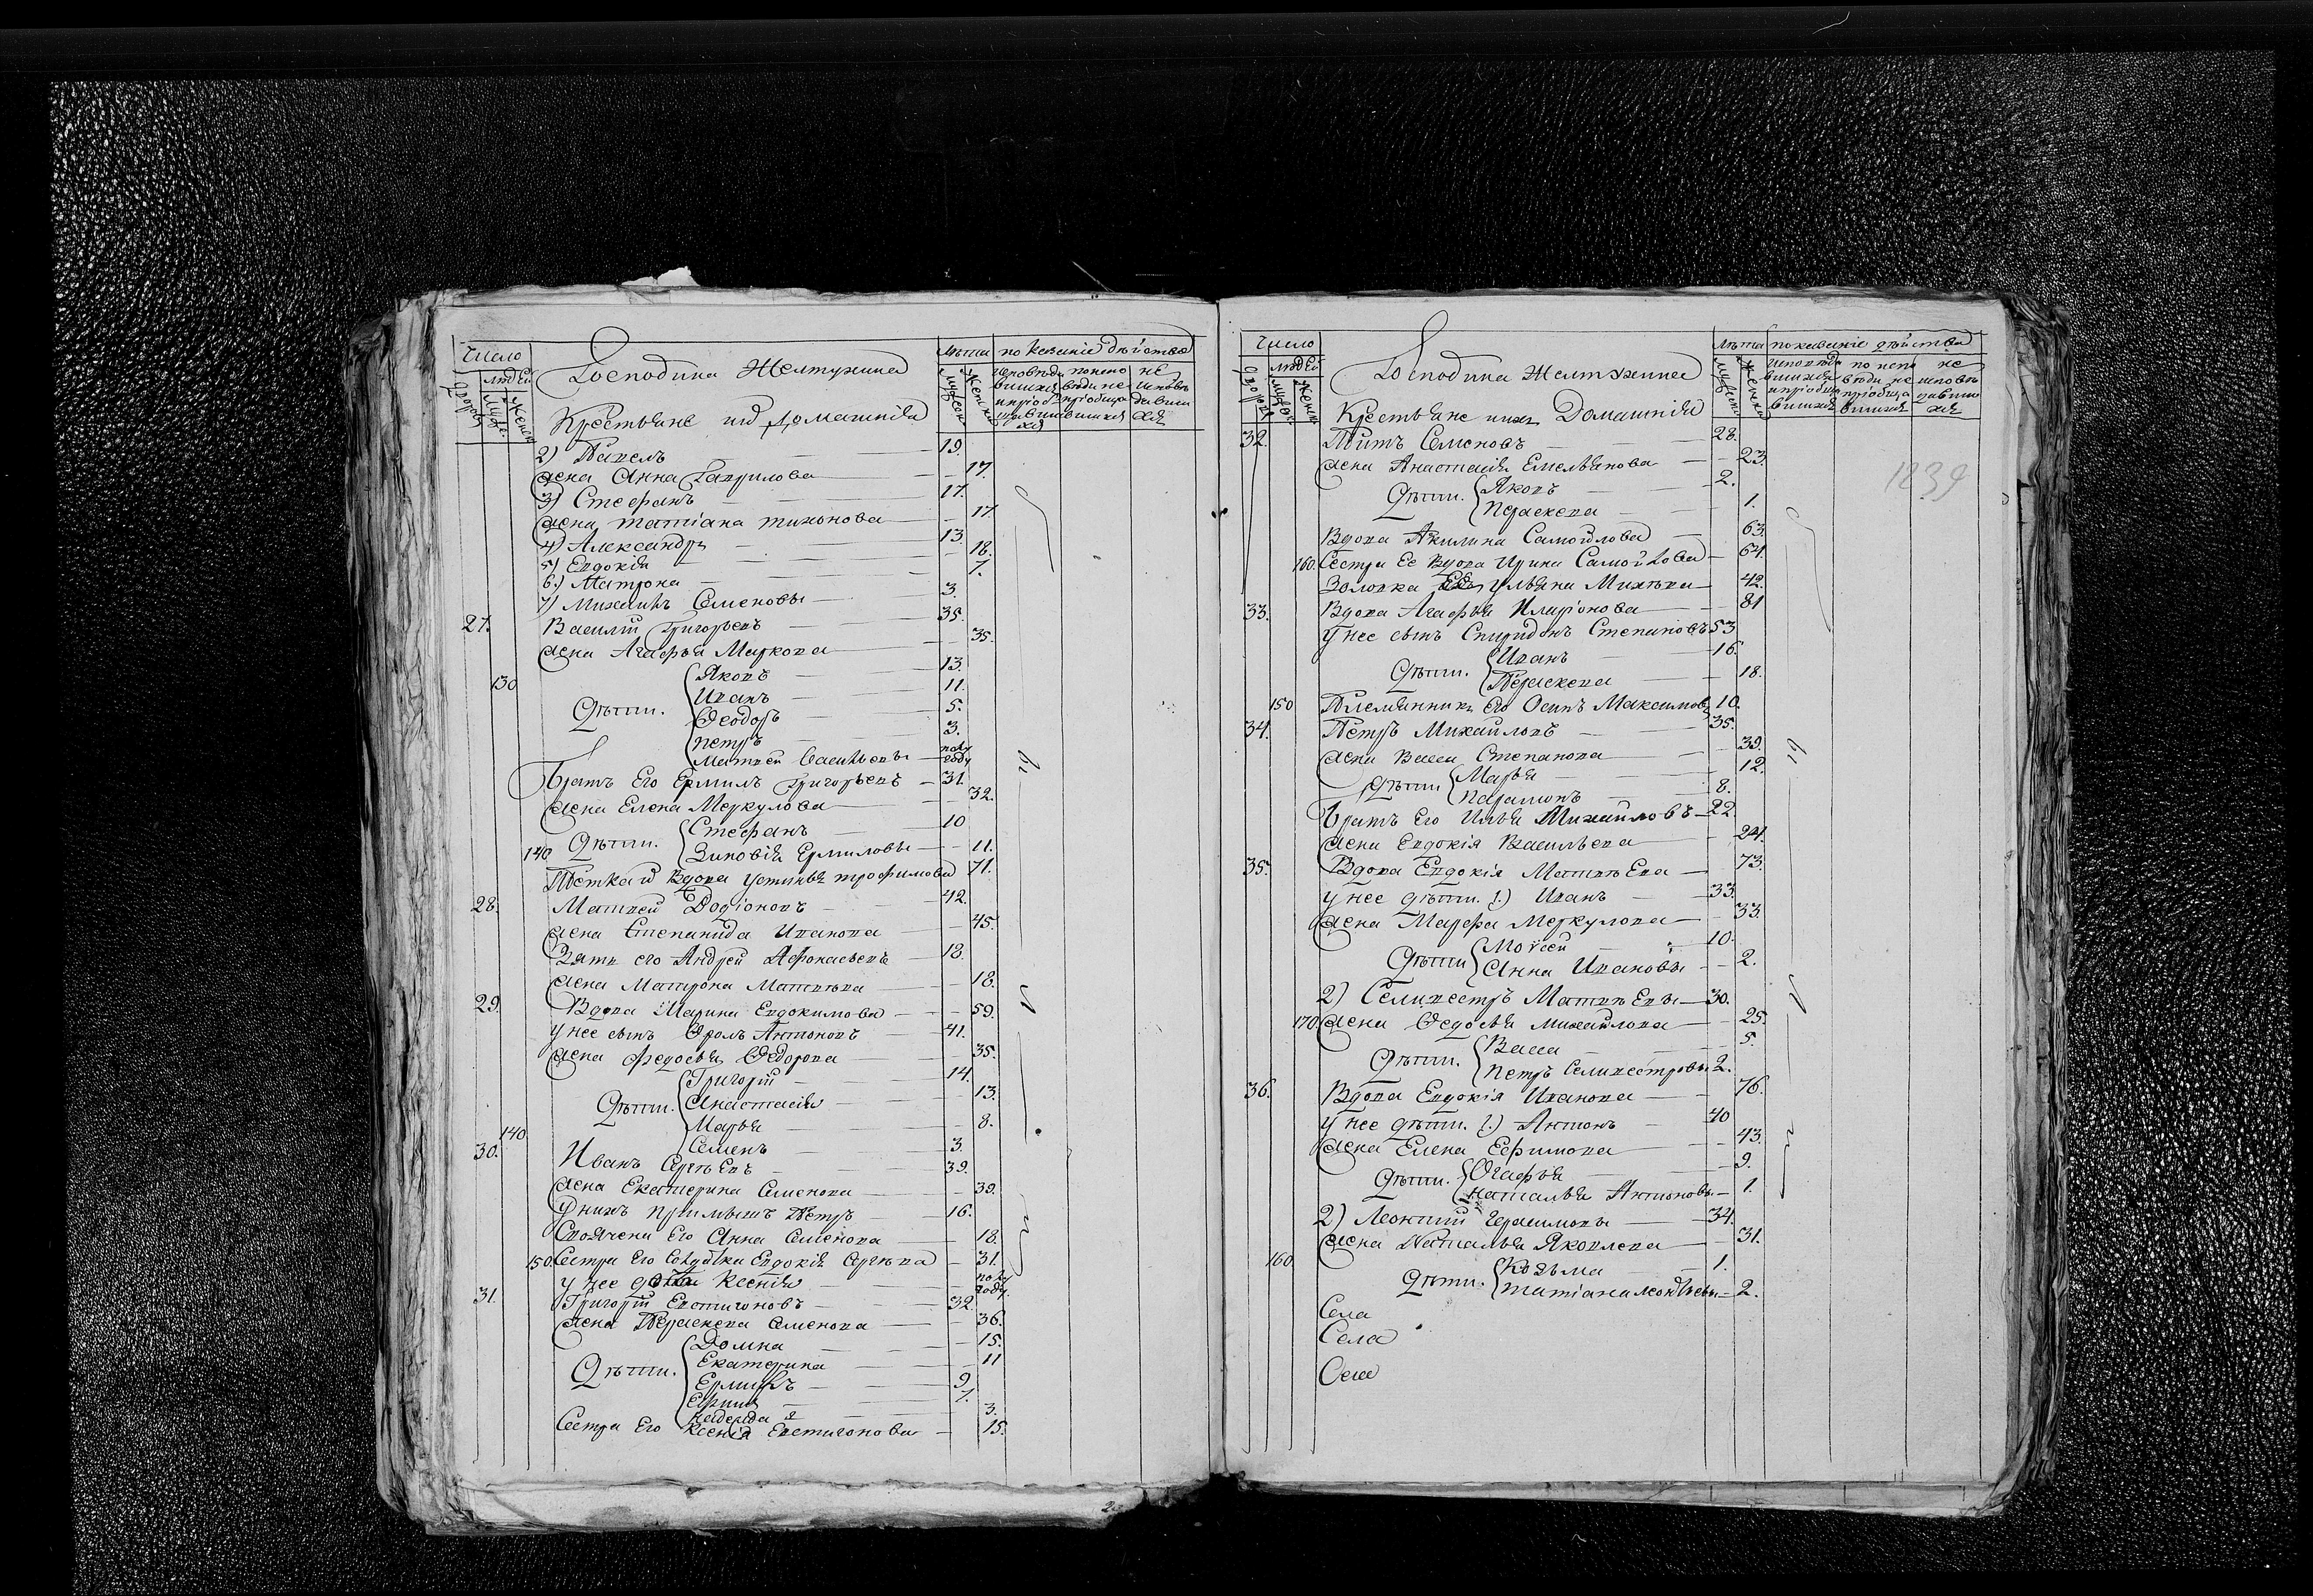 Число
Людей
дворовъ
Мужс
Женск
Господина Желтухина
Крестьяне и ид домашнiи
Лѣта
Мужеск
Женска
показанiе дѣйства
исповѣда
вшихся
и прiоб
щавших
ся
по испо
вѣди не
прiобща
вшихся
не
исповѣ
давши
хся
2) Павелъ 19.
жена Анна Гаврилова 17.
3) Стефанъ 17.
жена татiана тихонова 17.
4) Александръ 13.
5) Евдокiя 18.
6.) Матрона 7.
7) Михаилъ Семеновы 3.
27. Василiй Григорьевъ 35.
жена Агафья Маркова 35.
130 Дѣти. Яковъ 13.
Иванъ 11.
Ѳеодоръ 5.
петръ 3.
Матвей Васильевы полу году
Братъ Его Ермилъ Григорьевъ 31.
жена Елена Меркулова 32.
Дѣти. Стефанъ 10
140 Зиновiя Ермиловы 11.
Тетка и Вдова устинья трофимова 71.
28. Матвей Родiоновъ 42.
жена Степанида Иванова 45.
Зять его Андрей Афонасьевъ 18.
жена Матрона Матвѣва 18.
29. Вдова Марина Евдокимова 59.
у нее сынъ Фролъ Антоновъ 41.
жена федосья Ѳедорова 35.
Дѣти. Григорiй 14.
Анастасiя 13.
Марья 8.
140. Семенъ 3.
30. Иванъ Сергѣевъ 39.
жена Екатерина Семенова 39.
У нихъ примышъ Петръ 16.
Своячена Его Анна Семенова 18.
150 Сестра Его Солдатка Евдокiя Сергѣва 31.
у нее дочь Ксенiя полу году.
31. Григорiй Евстигоновъ 32.
жена Праскева Семенова 36.
Дѣти. Домна 15.
Екатерина 11
Ермилъ 9
Ефимъ 7.
надежда 3.
Сестра Его Ксенiя Евстигонова 15.
2
Число
Людей
дворовъ
Мужс
Женск
Господина Желтухина
Крестьяне ихъ Домашнiи
Лѣта
Мужеска
Женска
показанiе дѣйства
исповѣда
вшихся
и прiобща
вшихся
по испо
вѣди не
прiобща
вшихся
не
исповѣ
давши
хся
32. Титъ Семеновъ 28.
жена Анастасiя Емельянова 23.
1239
Дѣти. Яковъ 2.
праскева 1.
Вдова Акилина Самойлова 63.
160. Сестра Ее вдова Ирина Самойлова 64.
Золовка Ея Ульяна Михѣва 42.
33. Вдова Агафья Иларiонова 81
У нее сынъ Спиридонъ Степановъ 53
Дѣти. Иванъ 16.
Праскева 18.
150 Племянникъ Его Осипъ Максимовъ 10.
34. Петръ Михайловъ 35.
жена Васса Степанова 39.
Дѣти Марья 12.
Парамонъ 8.
Братъ Его Илья Михайловъ 22.
жена Евдокiя Васильева 24.
35. Вдова Евдокiя Матвѣева 73.
у нее дѣти. 1.) Иванъ 33.
жена Марфа Меркулова 33.
Дѣти Моѵсей 10.
Анна Ивановы 2.
2) Селивестръ Матвѣевы 30.
170. жена Ѳедосья михайлова 25.
Дѣти. Васса 5.
петръ Селивестровы 2.
36. Вдова Евдокiя Иванова 76.
у нее дѣти. 1.) Антонъ 40
жена Елена Ефимова 43.
Дѣти. Огафья 9.
наталья Антоновы 1.
2) Леонтiй Герасимовы 34.
жена Наталья Яковлева 31.
160. Дѣти. Козьма 1.
татiана леонтьевы 2.
Села
Села
Селе